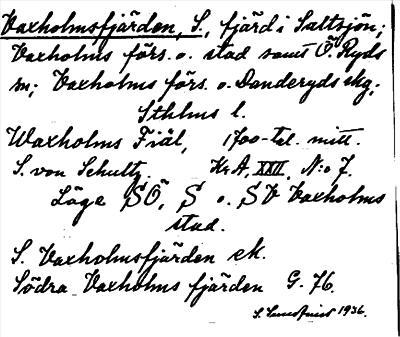 Vaxholmsfjärden, S., fjärd i Saltsjön;
Vaxholms förs. o. stad samt Ö. Ryds
sn; Vaxholms förs. o. Danderyds skg;
Sthlms l.
Waxholms Fiäl, 1700-tal. mitt.
S. von Schultz. KrA, XXII, N:o 7.
Läge SÖ, S o. SV Vaxholms
stad.
S. Vaxholmsfjärden ek.
Södra Vaxholms fjärden G. 76.
S. Lundqvist 1936.